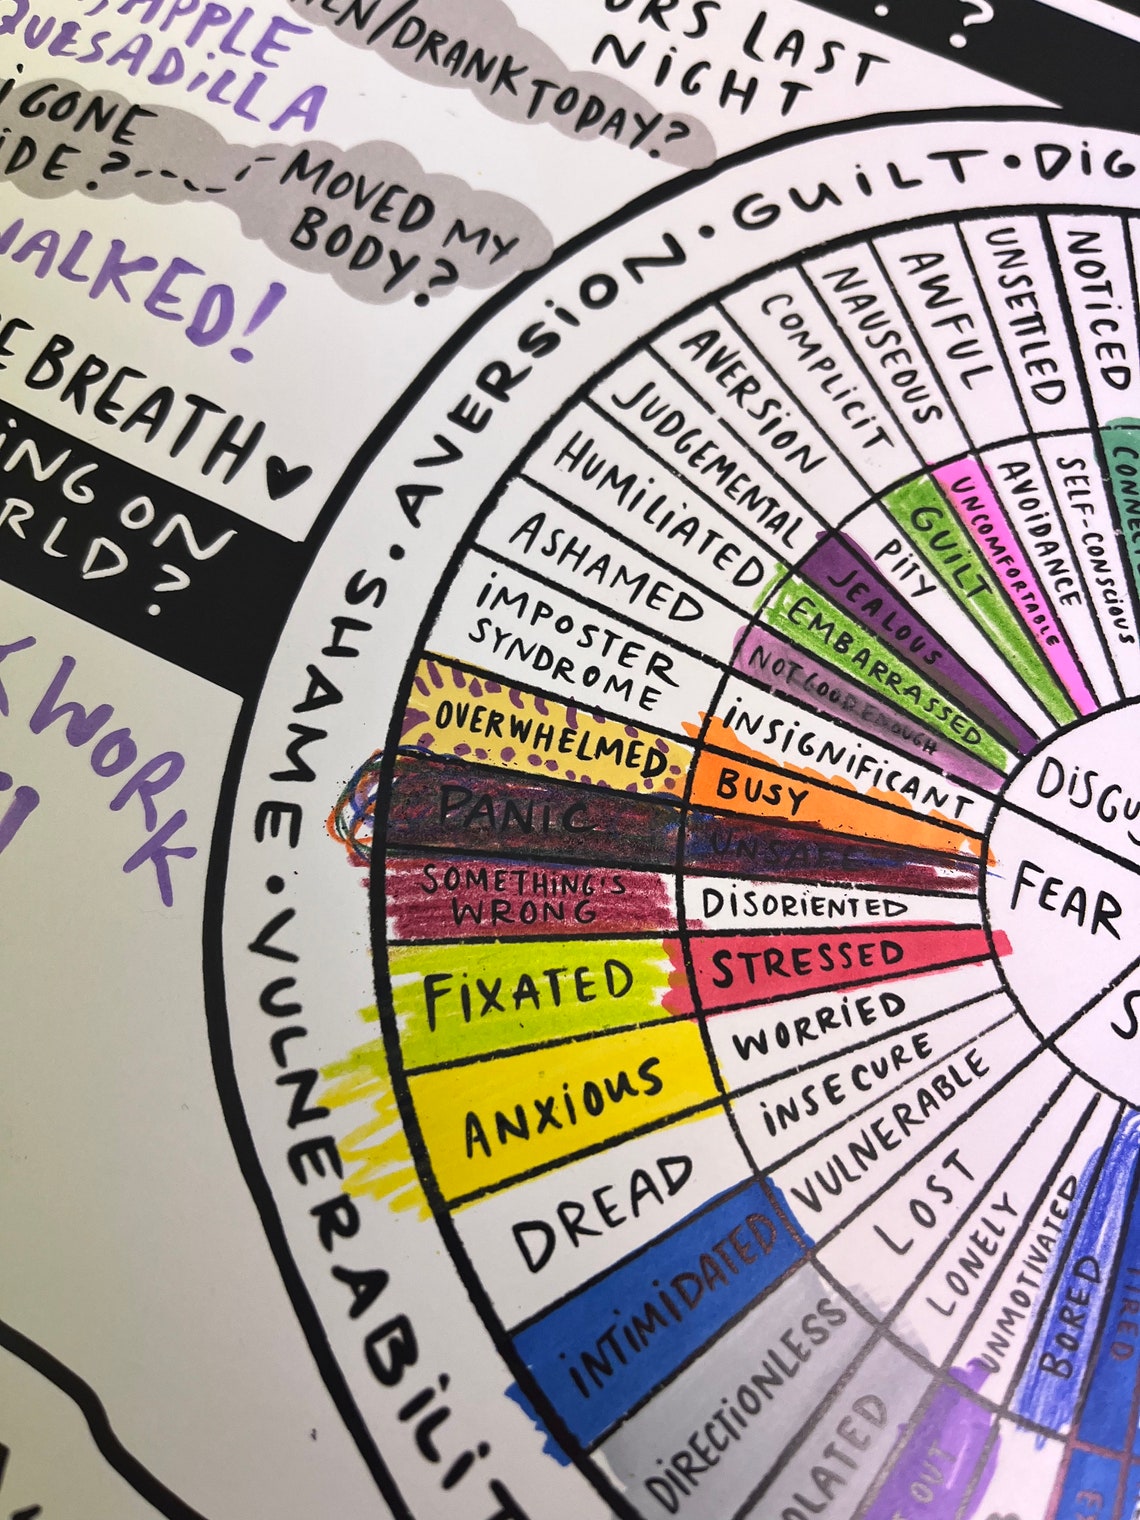 APPLE
QUESADILLA
/DRANK TODAY?
URS LAST
NIGHT
?
GONE
IDE?
MOVED MY
BODY?
WALKED!
BREATH
ON
RLD?
WORK
VULNERABILIT
SHAME
AVERSION
GUILT
DIG
NOTICED
UNSETTLED
AWFUL
NAUSEOUS
COMPLICIT
AVERSION
JUDGEMENTAL
HUMILIATED
ASHAMED
IMPOSTER
SYNDROME
OVERWHELMED
PANIC
SOMETHING'S
WRONG
FIXATED
ANXIOUS
DREAD
INTIMIDATED
DIRECTIONLESS
OLATED
OUT
SELF-CONSCIOUS
AVOIDANCE
UNCOMFORTABLE
GUILT
PITY
JEALOUS
EMBARRASSED
NOT GOOD ENOUGH
INSIGNIFICANT
BUSY
UNSAFE
DISORIENTED
STRESSED
WORRIED
INSECURE
VULNERABLE
LOST
LONELY
UNMOTIVATED
BORED
TIRED
DISGU
FEAR
S